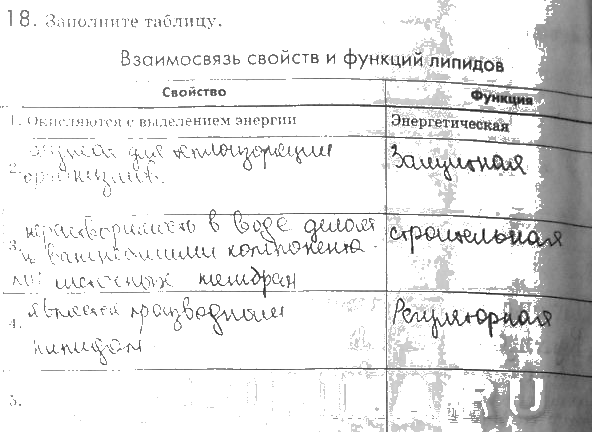 18. Заполните таблицу.
Взаимосвязь свойств и функций липидов
Свойство Функция
1. Окисляются с выделением энергии Энергетическая
2. для теплоизоляции Защитная
организмов.
3. нерастворимость в воде делает строительная
их важнейшими компонента-
ми клеточных мембран
4. является производным Регуляторная
липидом
5.